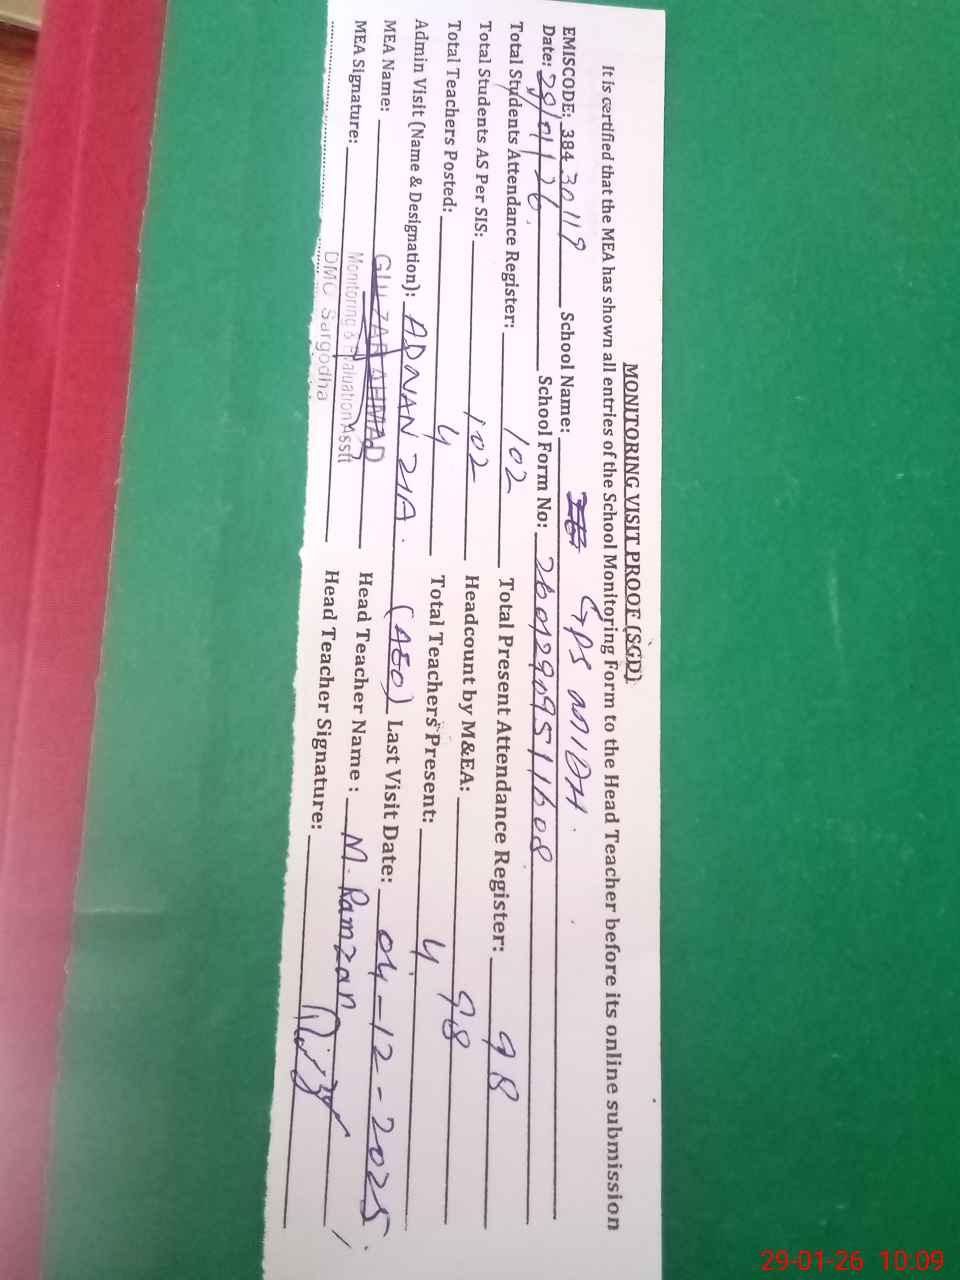 MONITORING VISIT PROOF (SGD)
It is certified that the MEA has shown all entries of the School Monitoring Form to the Head Teacher before its online submission
EMISCODE: 38430119 School Name: GPS
Date: 29/01/26. School Form No: 26012909511608
Total Students Attendance Register: 102 Total Present Attendance Register: 98
Total Students AS Per SIS: 102 Headcount by M&EA: 98
Total Teachers Posted: 4 Total Teachers Present: 4
Admin Visit (Name & Designation): ADNAN ZIA. (AEO) Last Visit Date: 04-12-2025
MEA Name: GULZAR AHMAD Head Teacher Name : M. Ramzan
Monitoring & Evaluation Asstt
MEA Signature: Head Teacher Signature:
DMO Sargodha
29-01-26 10:09